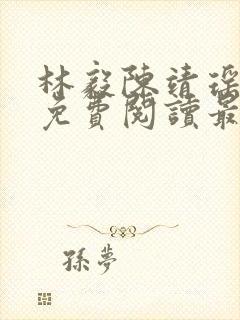 林毅陳靖瑤
免費閱讀最
孫夢